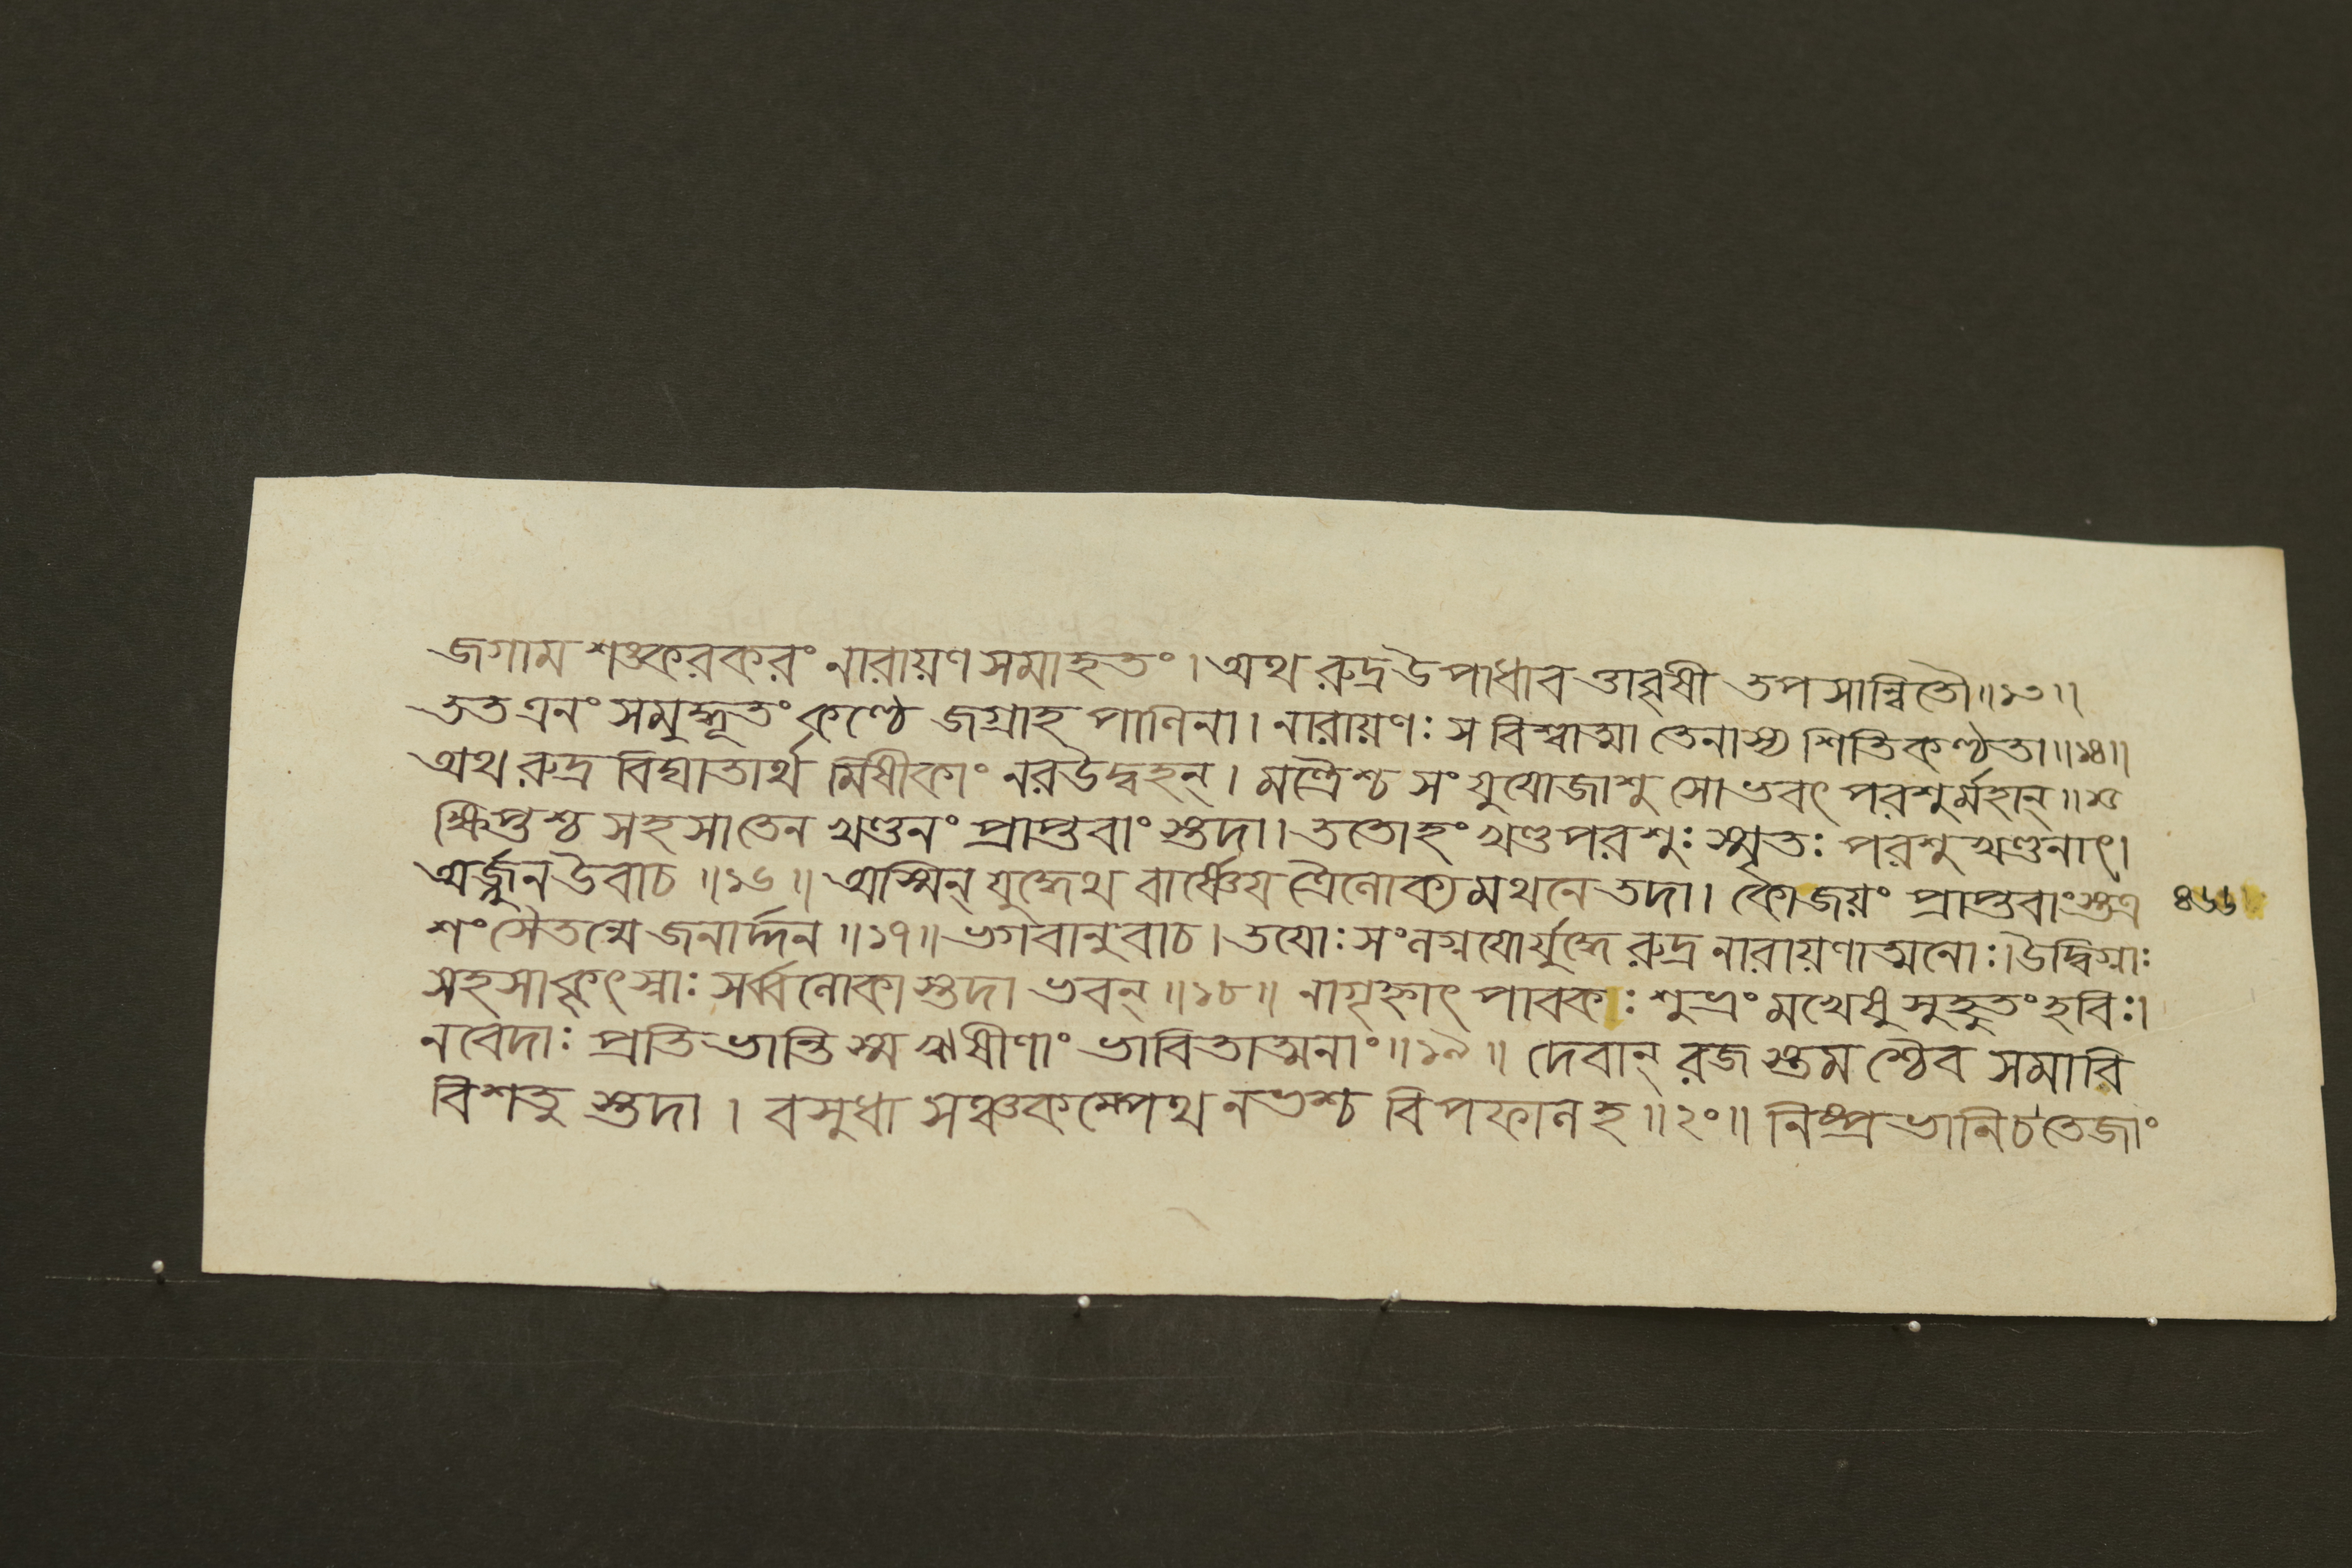 জগাম শঙ্করকরং নারায়ণসমাহতং। অথ রুদ্র উপাধাব ত্তাবৃষী তপসান্বিতৌ॥১৩॥
তত এনং সমুদ্ধূতং কণ্ঠে জগ্রাহ পাণিনা। নারায়ণঃ স বিশ্বাত্মা তেনাস্য শিতিকণ্ঠতা॥১৪॥
অথ রুদ্র বিঘাতার্থ মিষীকাং নর উদ্বহন্। মন্ত্রৈশ্চ সং যুযোজাশু সোভবৎ পরশুর্মহান্॥১৫
ক্ষিপ্তশ্চ সহসাতেন খণ্ডনং প্রাপ্তবাংস্তদা। ততোহং খণ্ডপরশুঃ স্মৃতঃ পরশুখণ্ডনাৎ।
অর্জ্জুন উবাচ॥১৬॥ অস্মিন্ যুদ্ধেথ বার্ষ্ণেয ত্রৈলোক্যমথনে তদা। কোজয়ং প্রাপ্তবাংস্তত্র ৪৬৬
শংসৈতন্মে জনার্দ্দন॥১৭॥ ভগবানুবাচ। তযোঃ সংলগ্নযোর্যুদ্ধে রুদ্রনারায়ণাত্মনোঃ। উদ্বিগ্নাঃ
সহসাকৃৎস্নাঃ সর্ব্বলোকাস্তদা ভবন্॥১৮॥ নাগৃহ্ণাৎ পাবকঃ শুভ্রং মখেষু সুহুতং হবিঃ।
নবেদাঃ প্রতিভান্তি স্ম ঋষীণাং ভাবিতাত্মনাং॥১৯॥ দেবান্ রজস্তমশ্চৈব সমাবি
বিশতুস্তদা। বসুধা সঞ্চকম্পেথ নভশ্চ বিপফালহ॥২০॥ নিষ্প্রভানি চ তেজাং